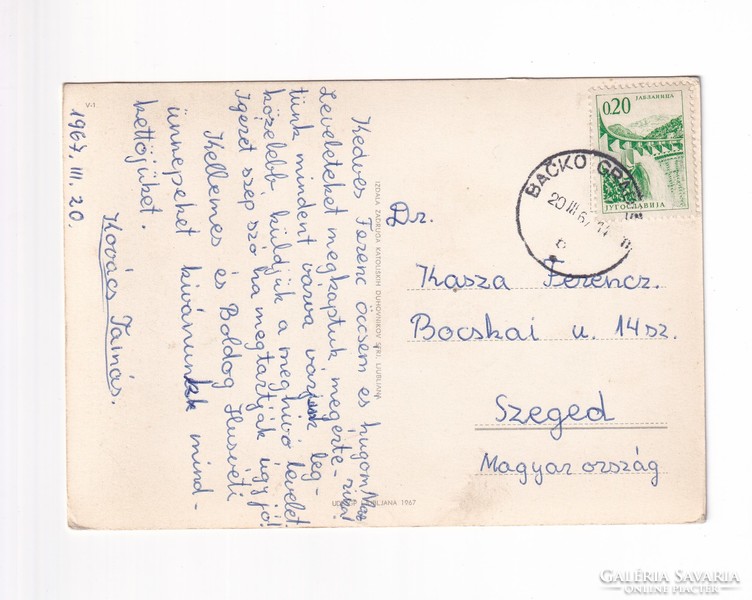 V-1
Kedves Ferenc öcsém és hugom
Leveleteket megkaptuk, megérte-
tünk mindent várva várjuk leg-
közelebb küldjük a meghívó levelet
Igéret szép szó ha megtartják úgy jó!
Kellemes és Boldog Husvéti
ünnepeket kivánunk mind-
kettőjüket.
Kovács Tamás.
1967. III. 20.
IZDALA ZADRUGA KATOLIŠKIH DUHOVNIKOV SRS, LJUBLJANA
LJUBLJANA 1967
ЈАБЛАНИЦА
0.20
ЈУГОСЛАВИЈА
BAČKO GRAD
20 III 67
Dr.
Kasza Ferencz.
Bocskai u. 14 sz.
Szeged
Magyarország
GALÉRIA SAVARIA
ONLINE PIACTÉR